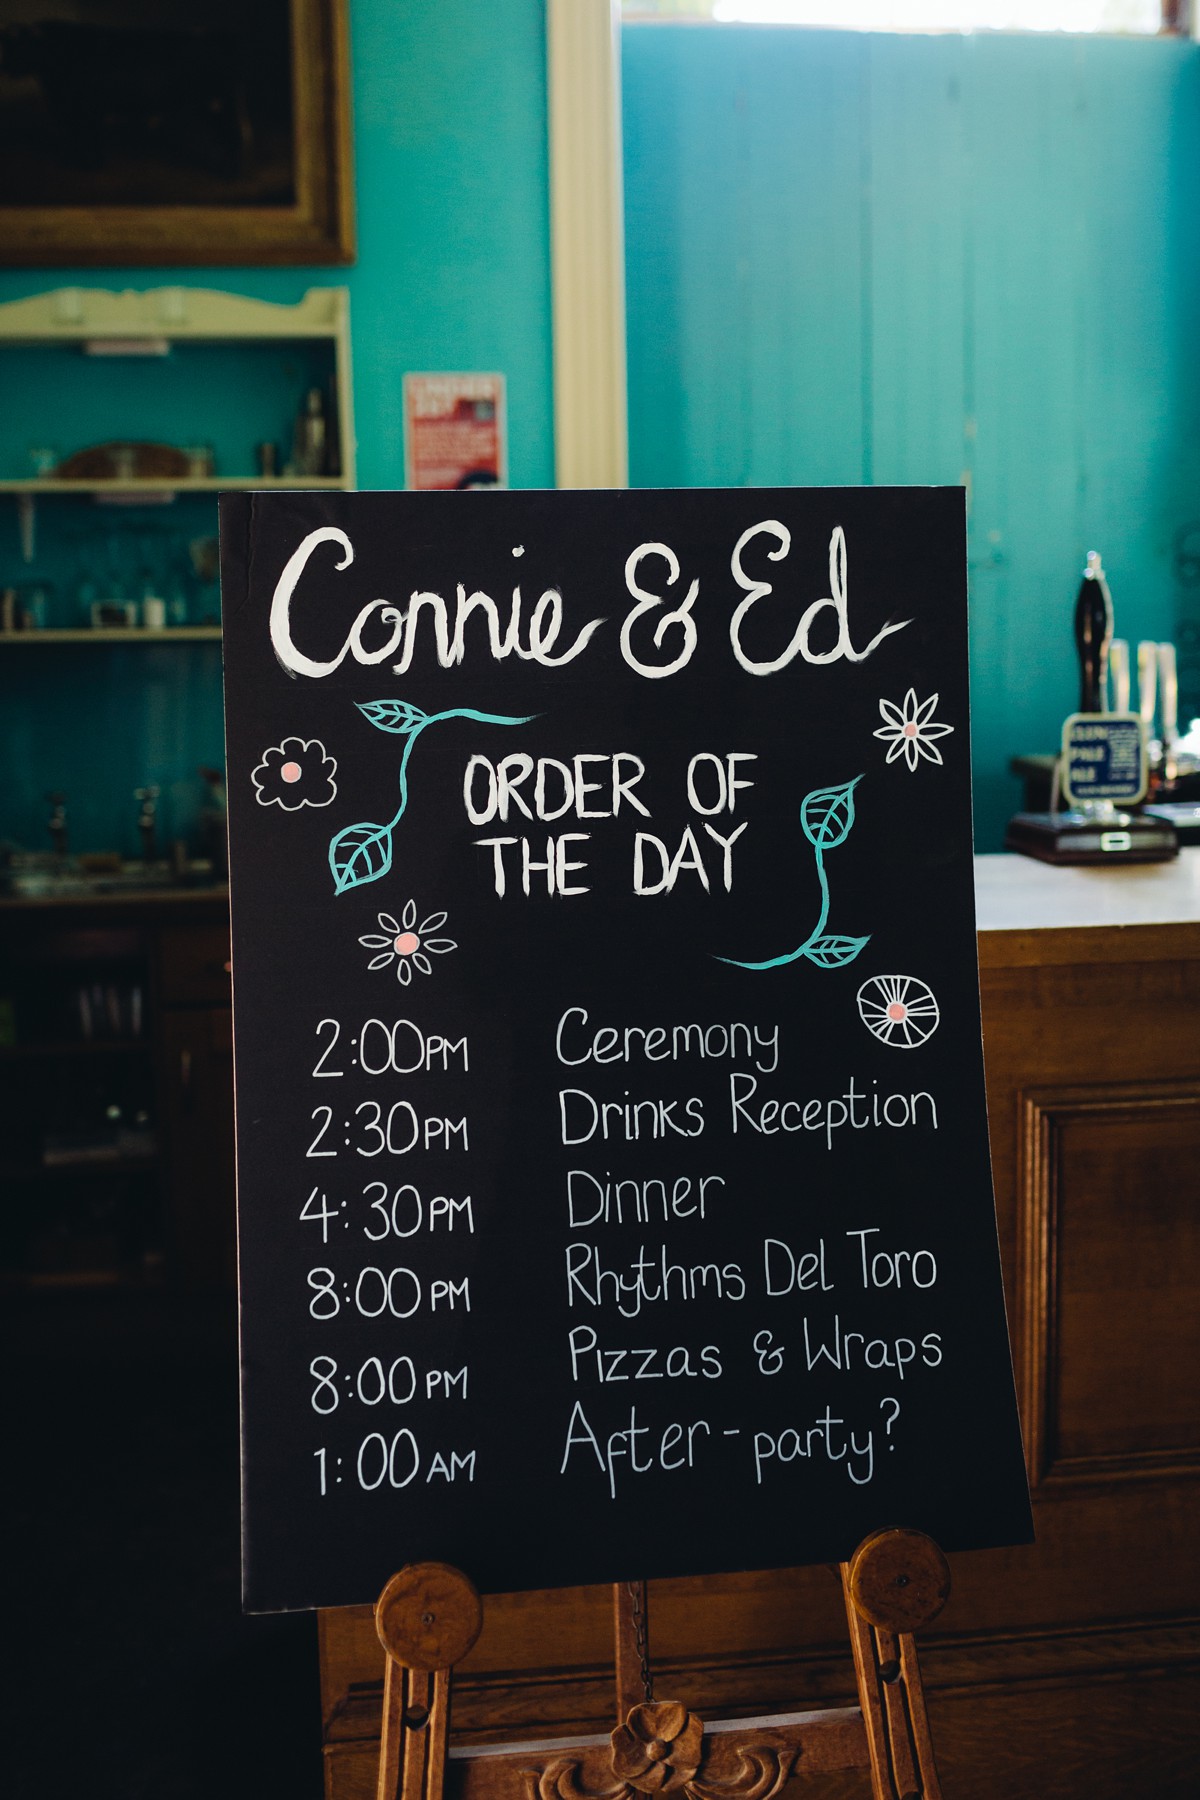 Connie & Ed
ORDER OF
THE DAY
2:00PM Ceremony
2:30PM Drinks Reception
4:30PM Dinner
8:00PM Rhythms Del Toro
8:00PM Pizzas & Wraps
1:00AM After-party?
PALE
ALE